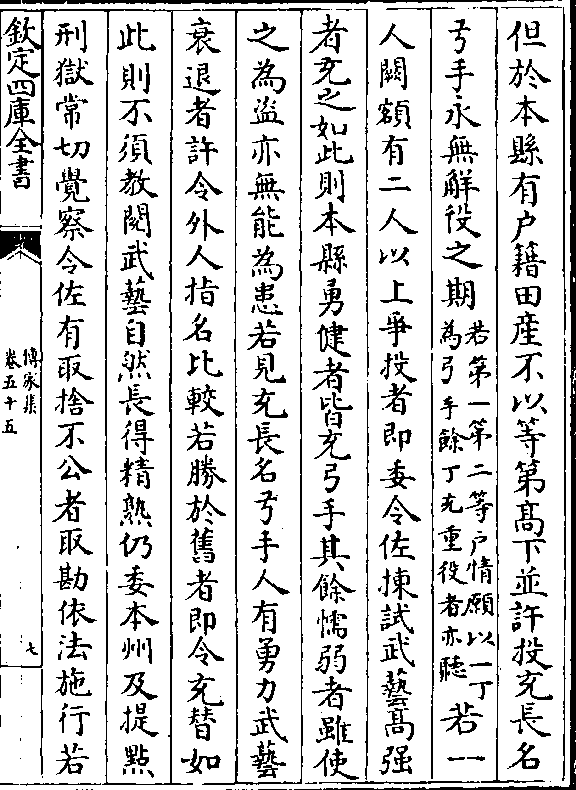 但於本縣有户籍田産不以等第髙下並許投充長名
弓手永無解役之期若第一第二等户情願以一丁
為弓手餘丁充重役者亦聽若一
人闕額有二人以上爭投者即委令佐揀試武藝髙强
者充之如此則本縣勇健者皆充弓手其餘懦弱者雖使
之為盗亦無能為患若見充長名弓手人有勇力武藝
衰退者許令外人指名比較若勝於舊者即令充替如
此則不須教閲武藝自然長得精熟仍委本州及提㸃
刑獄常切覺察令佐有取捨不公者取勘依法施行若
欽定四庫全書
傳家集
卷五十五
七